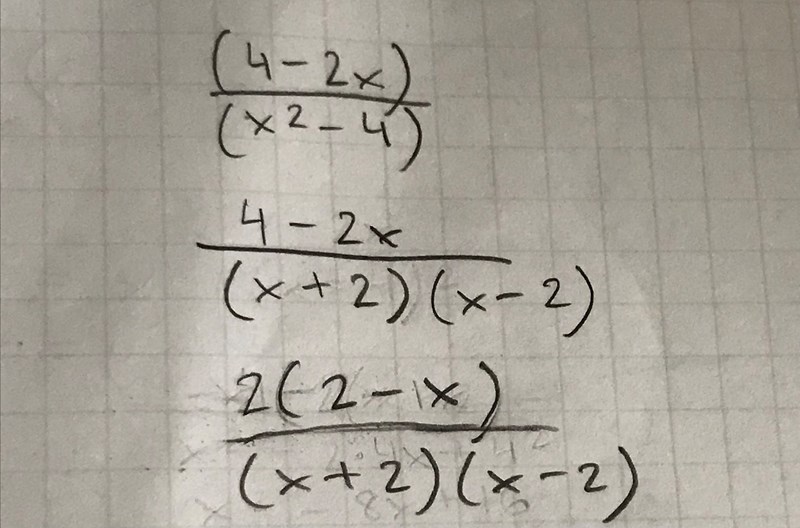 (4 - 2x)
(x² - 4)
4 - 2x
(x + 2)(x - 2)
2(2 - x)
(x + 2)(x - 2)